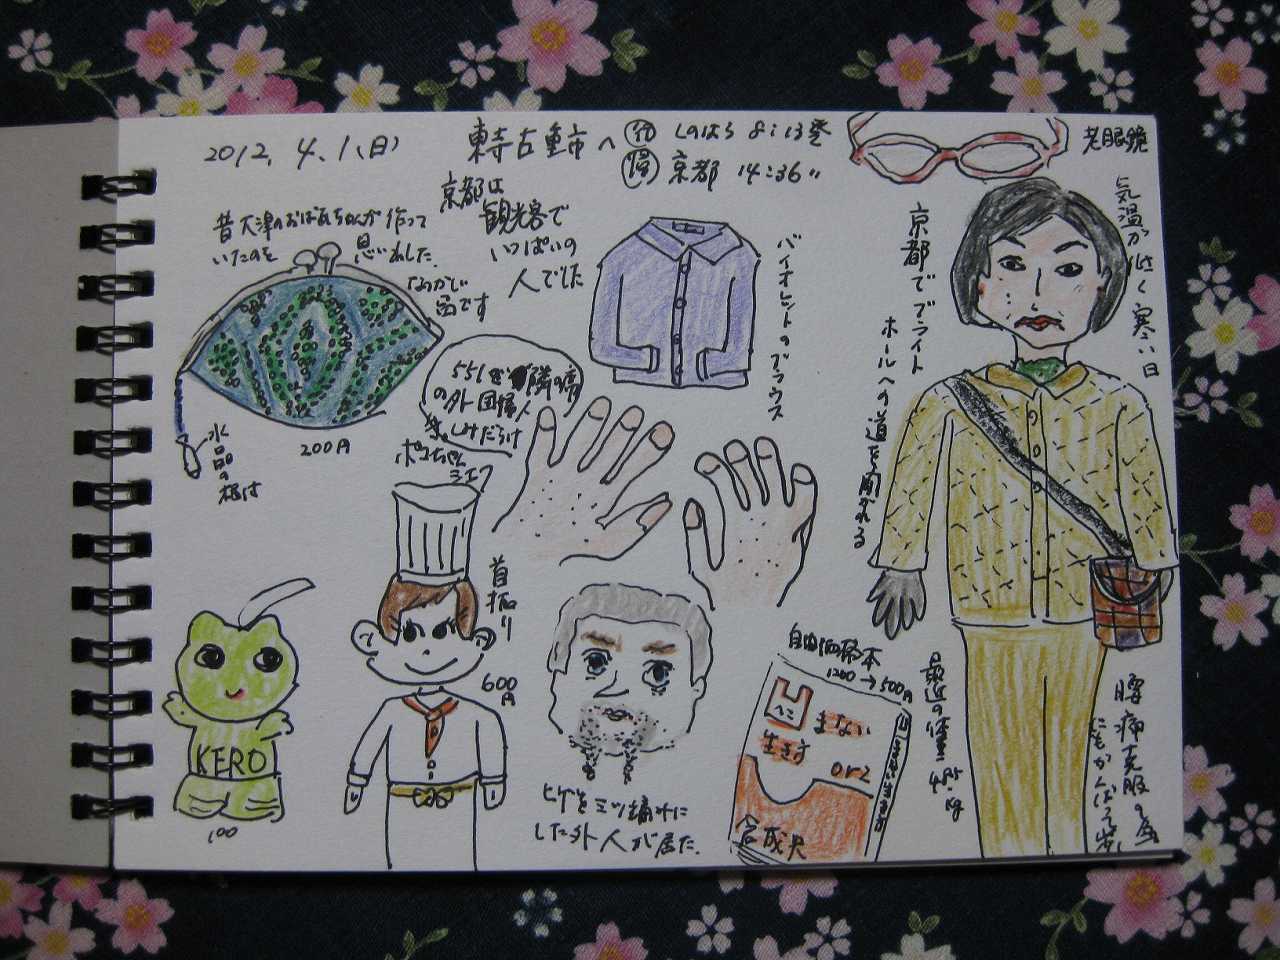 2012. 4. 1. (日)
東寺古市へ
行 しのはら 8:13発
帰 京都 14:36〃
老眼鏡
京都は
観光客で
いっぱいの
人でした
昔大津のおばあちゃんが作って
いたのを 思い出した
200円
水晶の
根付
バイオレットのブラウス
551を隣の席
の外国婦人
しみだらけ
ポコちゃん
シェフ
首振り
600円
KERO
100
ヒゲを三ツ編みに
した外人が居た.
自由価格本
1200→500円
へこ
まない
生き方
orz
合成史
京都でブライト
ホールへの道を聞かれる
気温が低く寒い日
最近の体重 49.5kg
腰痛克服の為
にもがんばって歩く